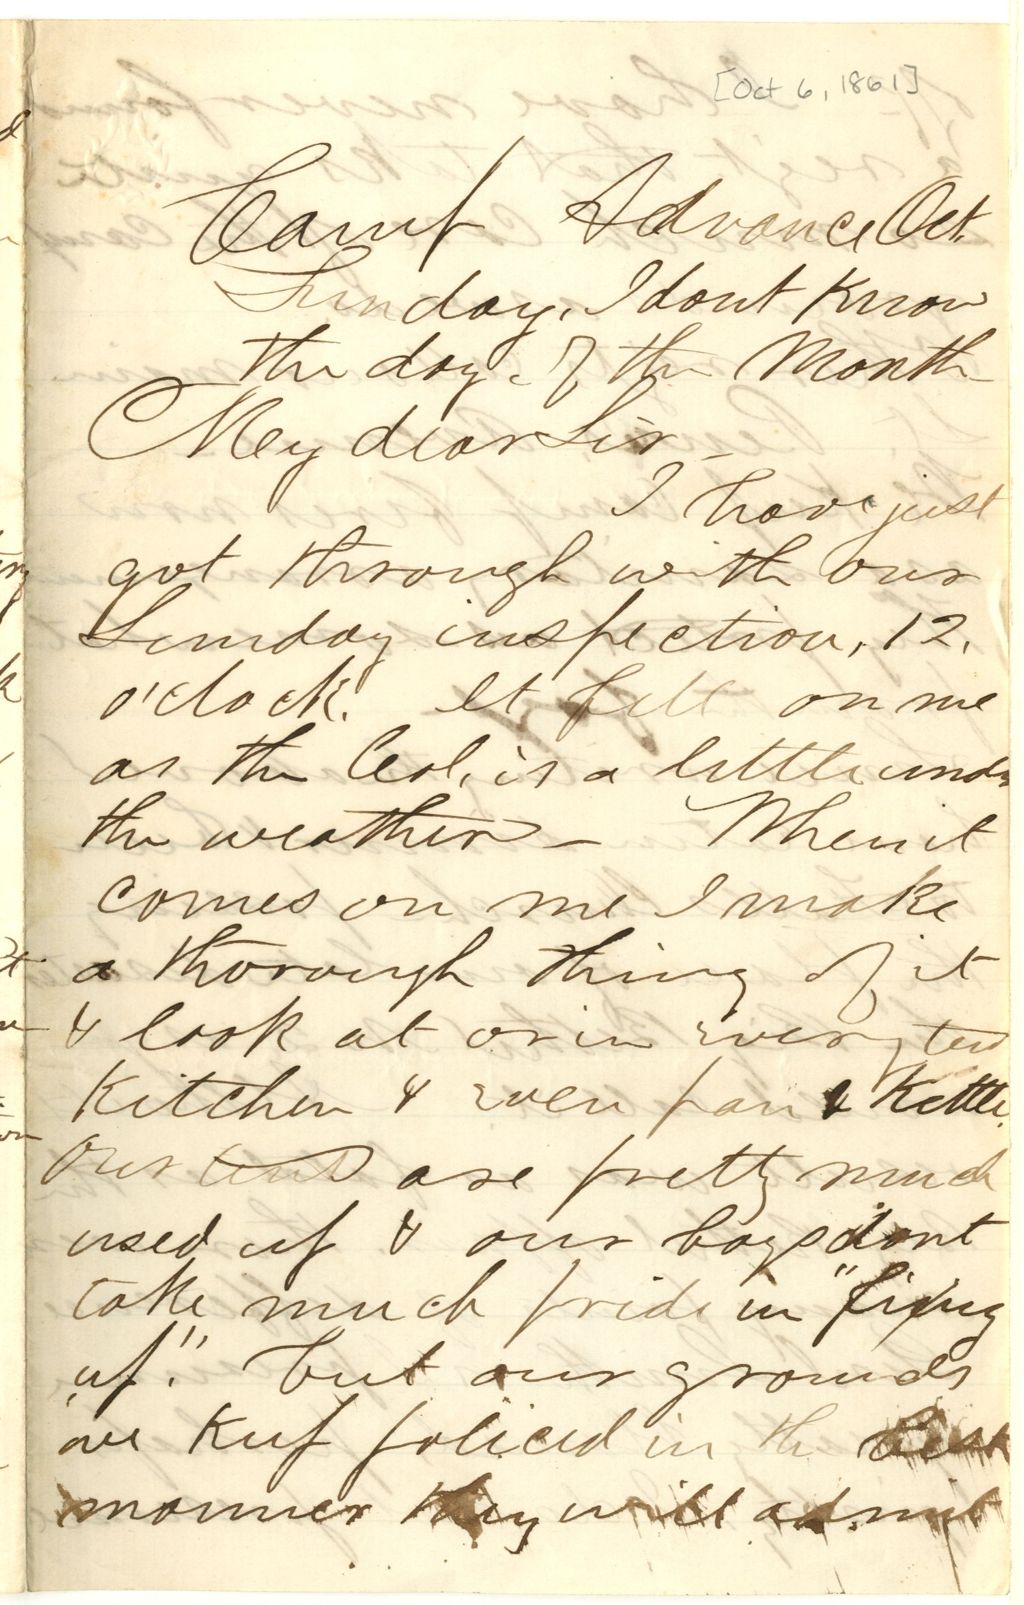 [Oct 6, 1861]
Camp Advance Oct.
Sunday, I dont know
the day of the Month
My dear Sir -
I have just
got through with our
Sunday inspection, 12,
o'clock. It fell on me
as the Col, is a little under
the weather - When it
comes on me I make
a thorough thing of it
& look at or in every tent
Kitchen & even pan & Kettle.
Our tents are pretty much
used up & our boys dont
take much pride in "fixing
up." but our grounds
are Kept policed in the best
manner they will admit